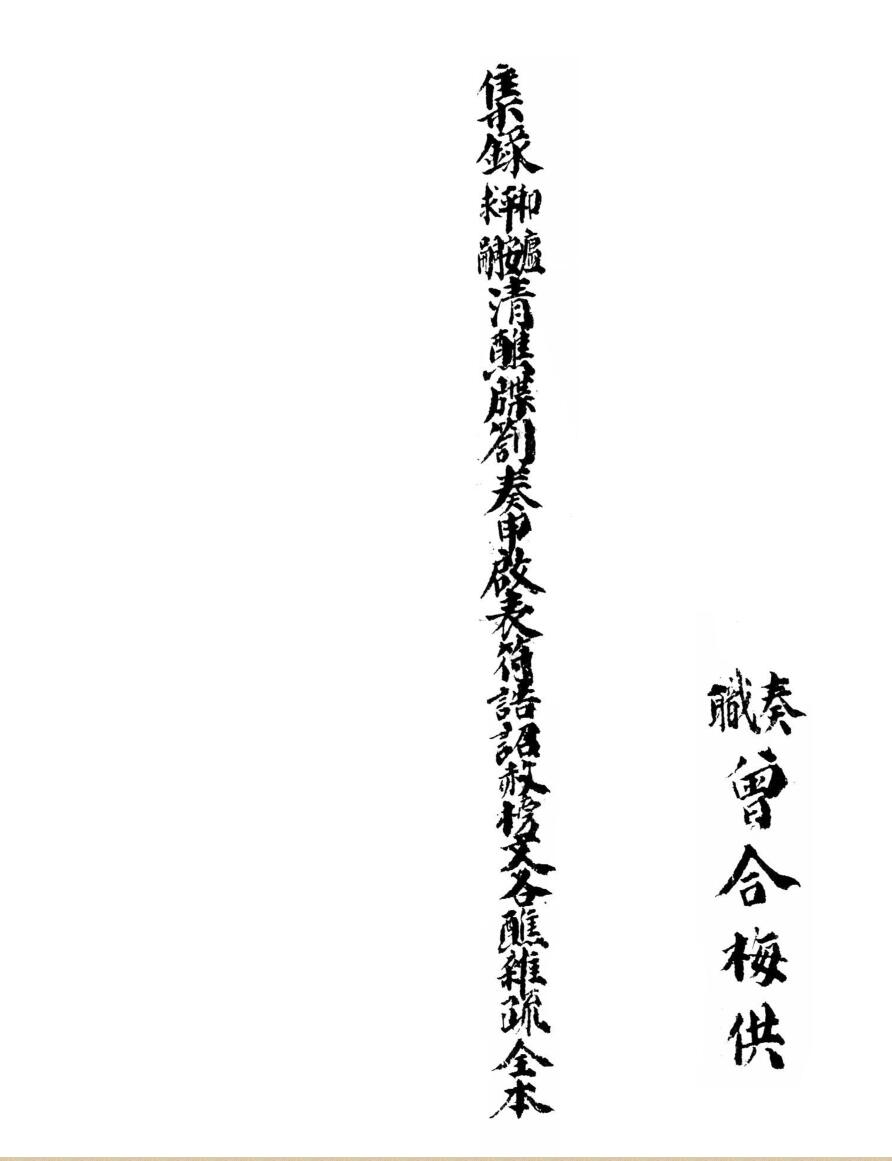 奏職曾合梅供
集錄和瘟平安求嗣清醮牒劄奏申啟表符誥詔赦榜文各醮雜疏全本